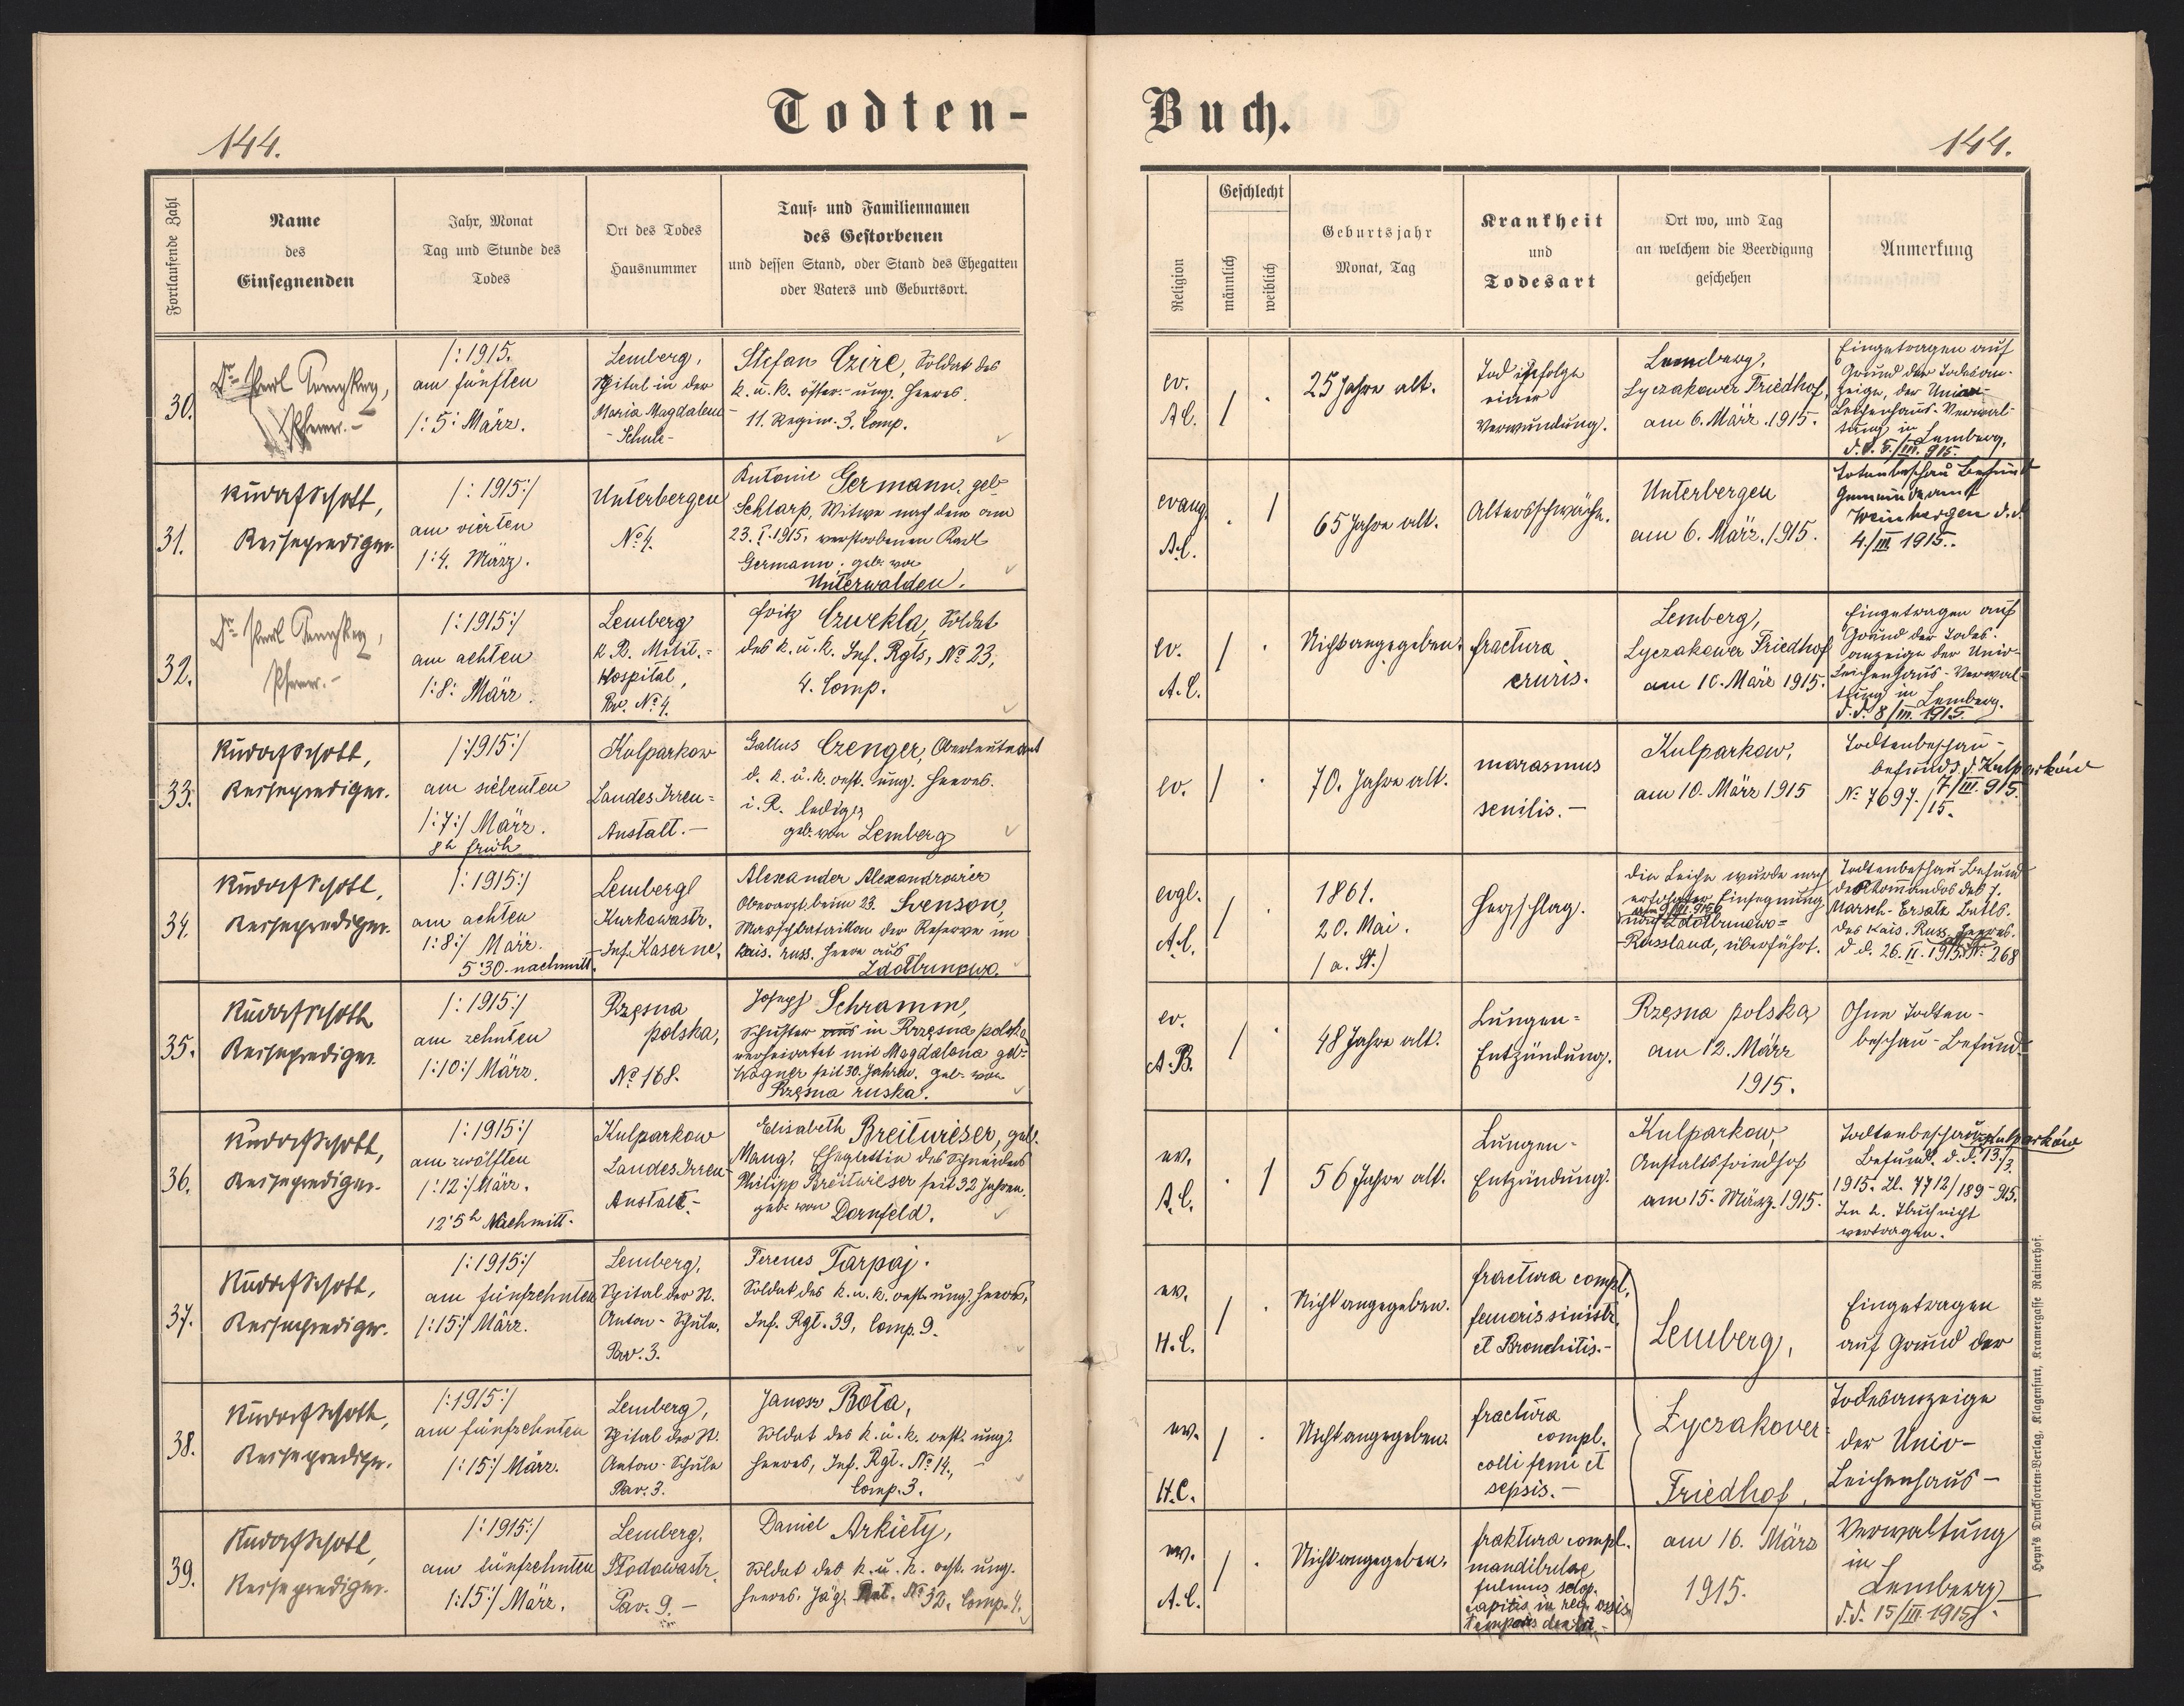 Todten-
Buch.
144.
144.
Fortlaufende Zahl
Name
des
Einsegnenden
Jahr, Monat
Tag und Stunde des
Todes
Ort des Todes
Hausnummer
Tauf- und Familiennamen
des Gestorbenen
und dessen Stand, oder Stand des Ehegatten
oder Vaters und Geburtsort.
Religion
Geschlecht
männlich
weiblich
Geburtsjahr
Monat, Tag
Krankheit
und
Todesart
Ort wo, und Tag
an welchem die Beerdigung
geschehen
Anmerkung
30.
Dr.
Pfarrer.-
/:1915.
am fünften
/:5: März.
Lemberg,
Spital in der
Maria Magdalena-
-Schule-
Stefan Czire, Soldat des
k. u. k. österr.-ung. Heeres.
11. Regim. 3. Comp.
ev.
A.C.
/
.
25 Jahre alt.
Tod infolge
einer
Verwundung.
Lemberg,
Lyczakower Friedhof,
am 6. März. 1915.
Eingetragen auf
Grund der Todesan-
zeige, der Univer-
Leichenhaus-Verwal-
tung in Lemberg,
d.d. 5./III. 915.
31.
Rudolf Schott,
Reiseprediger.
/:1915:/
am vierten
/:4. März.
Unterbergen
No 4.
Antonie Germann, geb.
Schlarp, Witwe nach dem am
23. I. 1915. verstorbenen Karl
Germann. geb. von
Unterwalden.
evang.
A.C.
.
/
65 Jahre alt.
Altersschwäche.
Unterbergen
am 6. März. 1915.
Totenbeschau Befund
Gemeindeamt
Weinbergen d.d.
4./III 1915.
32.
Dr.
Pfarrer.-
/:1915:/
am achten
/:8: März.
Lemberg
k. B. Milit.-
Hospital,
Pav. No 4.
Fritz Czwekla, Soldat
des k. u. k. Inf. Rgts, No 23,
4. Comp.
ev.
A.C.
/
.
Nicht angegeben.
fractura
cruris.
Lemberg,
Lyczakower Friedhof
am 10. März 1915.
Eingetragen auf
Grund der Todes-
anzeige der Univ-
Leichenhaus-Verwal-
tung in Lemberg.
d.d. 8/III. 1915.
33.
Rudolf Schott,
Reiseprediger.
/:1915:/
am siebenten
/:7:/ März.
8h früh
Kulparkow
Landes Irren-
Anstalt.-
Gallus Czenger, Oberleutnant
d. k. u. k. oest. ung. Heeres.
i. R. ledig,
geb. von Lemberg
ev.
/
.
70. Jahre alt.
marasmus
senilis.-
Kulparkow,
am 10. März 1915
Todtenbeschau-
befund d. d. Kulparków
7/III. 915.
No 7697./15.
34.
Rudolf Schott,
Reiseprediger.
/:1915:/
am achten
/:8:/ März.
5·30. nachmitt.
Lemberg
Kurkowastr.
-Inf. Kaserne.
Alexander Alexandrowicz
Oberarzt beim 23. Svenson,
Marschbataillon der Reserve im
kais. russ. Heere aus
Zdołbunowo.
evgl.
A.C.
/
.
1861.
20. Mai.
/a. St.)
Herzschlag.
Die Leiche wurde nach
erfolgter Einsegnung
am 9/III. 915
nach Zdołbunowo-
-Russland, überführt.
Todtenbeschau-Befund
des Kommandos des 7.
Marsch-Ersatz Batls.
des kais. Russ. Heeres.
d d. 26. II. 1915. No 268
35.
Rudolf Schott
Reiseprediger.
/:1915:/
am zehnten
/:10:/ März.
Rzęsna
polska,
No 168.
Joseph Schramm,
Schuster aus in Rzęsna polska,
verheiratet mit Magdalena geb.
Wagner seit 30. Jahren. geb. von
Rzęsna ruska.
ev.
A.B.
/
.
48 Jahre alt.
Lungen-
Entzündung.
Rzęsna polska,
am 12. März
1915.
Ohne Todten-
beschau-Befund.
36.
Rudolf Schott,
Reiseprediger.
/:1915:/
am zwölften
/:12:/ März.
12·5h Nachmitt.
Kulparkow
Landes Irren-
Anstalt.-
Elisabeth Breitwieser, geb.
Mang, Ehegattin des Schneiders
Philipp Breitwieser seit 32 Jahren.
geb. von Dornfeld.
ev.
A.C.
.
/
56 Jahre alt.
Lungen-
Entzündung.
Kulparkow,
Anstaltsfriedhof
am 15. März. 1915.
Todtenbeschau Kulparków
Befund. d. d. 13./3.
1915. Zl. 7712/189-915.
vertragen.
37.
Rudolf Schott,
Reiseprediger.
/:1915:/
am fünfzehnten
/:15:/ März.
Lemberg,
Spital der St.
Anton-Schule.
Pav. 3.
Ferenes Tarpaj.
Soldat des k. u. k. oest. ung. Heeres,
Inf. Rgt. 39, Comp. 9.
ev.
H.C.
/
.
Nicht angegeben.
fractura compl.
femoris sinistr.
et Bronchitis.-
Lemberg,
Eingetragen
auf Grund der
38.
Rudolf Schott,
Reiseprediger.
/:1915:/
am fünfzehnten
/:15:/ März.
Lemberg,
Spital der St.
Anton-Schule
Pav. 3.
Janosz Bota,
Soldat des k. u. k. oest. ung.
Heeres, Inf. Rgt. No 14.,
Comp. 3.
ev.
H.C.
/
.
Nicht angegeben.
fractura
compl.
colli femi et
sepsis.-
Łyczakower-
Friedhof,
Todesanzeige
der Univ-
Leichenhaus-
39.
Rudolf Schott,
Reiseprediger.
/:1915:/
am fünfzehnten
/:15:/ März.
Lemberg,
Stodowastr.
Pav. 9.-
Daniel Arkiety,
Soldat des k. u. k. oest. ung.
Heeres. Jäg. Bat. No 32. Comp. 4.
ev.
A.C.
/
.
Nicht angegeben.
fraktura compl.
mandibulae
capitis in reg. ossis
am 16. März
1915.
Verwaltung
in
Lemberg
d.d. 15/III. 1915.
Heyn's Drucksorten-Verlag, Klagenfurt, Kramergasse Rainerhof.